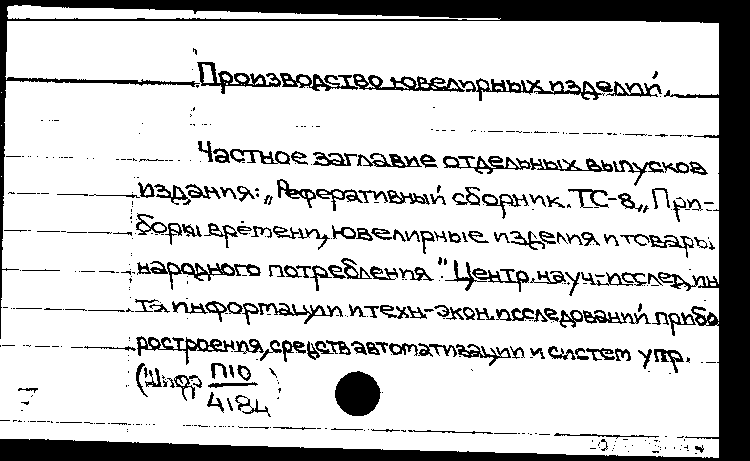 Производство ювелирных изделий.
Частное заглавие отдельных выпусков
издания: „Реферативный сборник. ТС-8 „При-
боры времени, ювелирные изделия и товары
народного потребления". Центр. науч.-исслед. ин
та информации и техн-экон. исследований прибо
ростроения, средств автоматизации и систем упр.
(Шифр П10
4184)